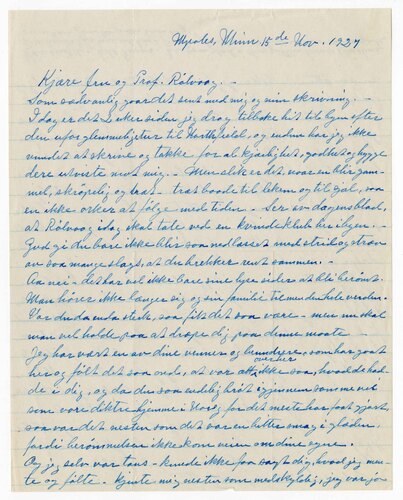 Mpoles, Minn 15de Nov. 1927
Kjære fru og Prof. Rölvaag. —
Som sædvanlig gaar det sent med mig og min skrivning. —
I dag er det 2 uker siden jeg drog tilbake hit til byen efter
den uforglemmelige tur til Northfield, og endnu har jeg ikke
vundet at skrive og takke for al kjærlighet, godhet og hygge
dere utviste mot mig. — Men slik er det, naar en blir gam-
mel, skröpelig og lat — træt baade til lekem og til sjæl, saa
en ikke orker at fölge med tiden. — Ser av dagens blad,
at Rölvaag idag skal tale ved en kvindeklub her i byen. —
Gud gi du bare ikke blir saa nedlæsset med strid og stræv
av saa mange slags, at du brekker rent sammen. —
Aa nei — det har vel ikke bare sine lyse sider at bli berömt.
Man hörer ikke længer sig og sin familie til men den hele verden.
Var du da enda sterk, saa fikk det saa være — men nu skal
man vel holde paa at dræpe dig paa denne maate.
Jeg har vært en av dine venner og beundrere, som har gaat
her og fölt det saa ondt, at vor alle ikke saa, hvad de had-
de i dig, og da du saa endelig bröt igjennem som en vel
som vore diktere hjemme i Norge for det meste har faat gjort,
saa var det næsten som det var en bitter smag i glæden,
fordi berömmelsen ikke kom veien om dine egne.
Og jeg selv var taus — kunde ikke faa sagt dig, hvad jeg men-
te og fölte. Kjente mig næsten som medskyldig, jeg var jo